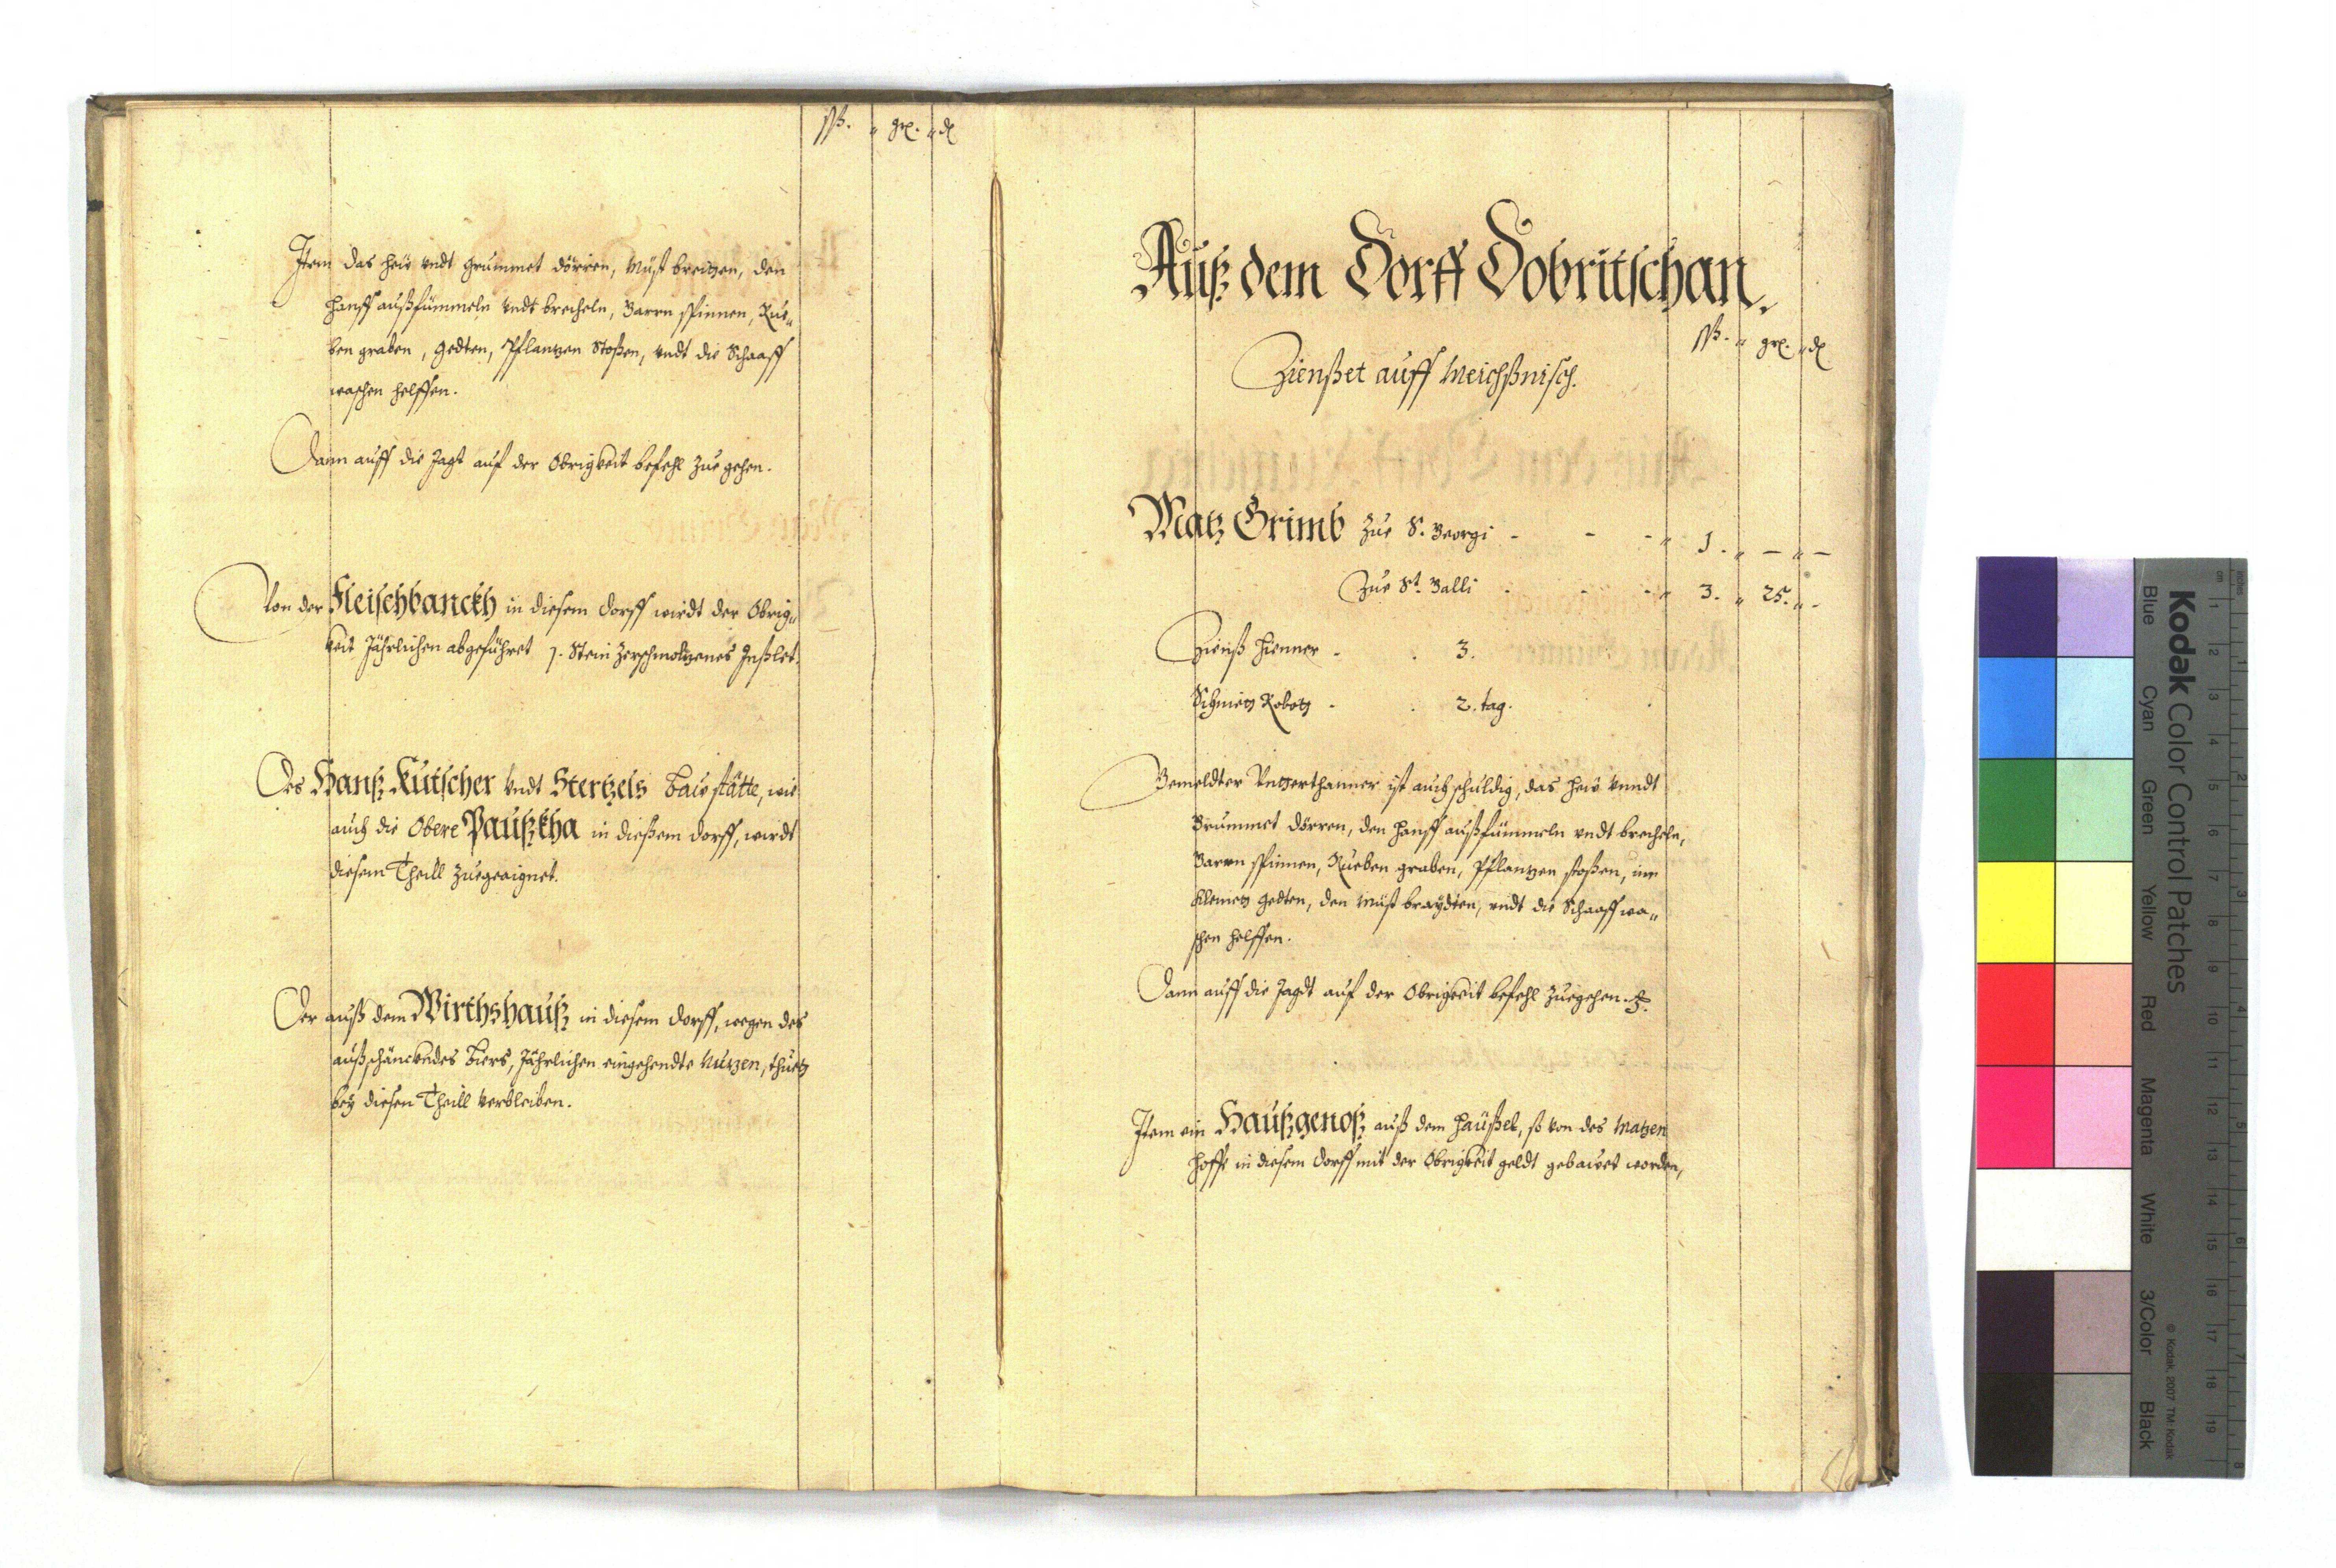 ßß. " gr. " d
Item das heü vndt grummet dörren, Müst breitzen, den
hanff außfümmeln vndt brecheln, Garrn spinnen, Rue„
ben graben, gedten, Pflantzen Stoßen, vndt die Schaaff
waschen helffen.
Dann auff die Jagt auf der Obrigkeit befehl zue gehen.
Von der Fleischbanckh in diesem dorff wirdt der Obrig„
keit Jährlichen abgeführet 1. Stein zerschmoltzenes Inßlet.
Des Hanß Kutscher vndt Stertzels Baustätte, wie
auch die Obere Paußkha in dießem dorff, wirdt
diesem Theill zuegeeignet.
Der auß dem Wirthshauß in diesem dorff, wegen des
außschänckendes Biers, Jährlichen eingehendte Nutzen, thuet
bey diesen Theill verbleiben.
Auß dem Dorff Dobritschan.
ßß. " gr. " d
Zienßet auff Meichßnisch.
Matz Grimb Zue S. Georgi - - - " 1. " — " —
Zue St. Galli - - - " 3. " 25. " -
Zienß hienner - . 3.
Schnietz Robotz - . 2. tag.
Gemeldter Vnterthanner ist auch schuldig, das heü vnndt
Grummet dörren, den hanff außfümmeln vndt brecheln,
Garrn spinnen, Rueben graben, Pflantzen stoßen, inn
gedten, den Müst braydten, vndt die Schaaff wa„
schen helffen.
Dann auff die Jagdt auf der Obrigkeit befehl zuegehen.
Item ein Haußgenoß auß dem häußel, so von des Matzen
hoffe in diesem dorff mit der Obrigkeit geldt gebauet worden,
Kodak Color Control Patches
Blue Cyan Green Yellow Red Magenta White 3/Color Black
© Kodak, 2007 TM: Kodak
inches 1 2 3 4 5 6 7 8
cm 1 2 3 4 5 6 7 8 9 10 11 12 13 14 15 16 17 18 19